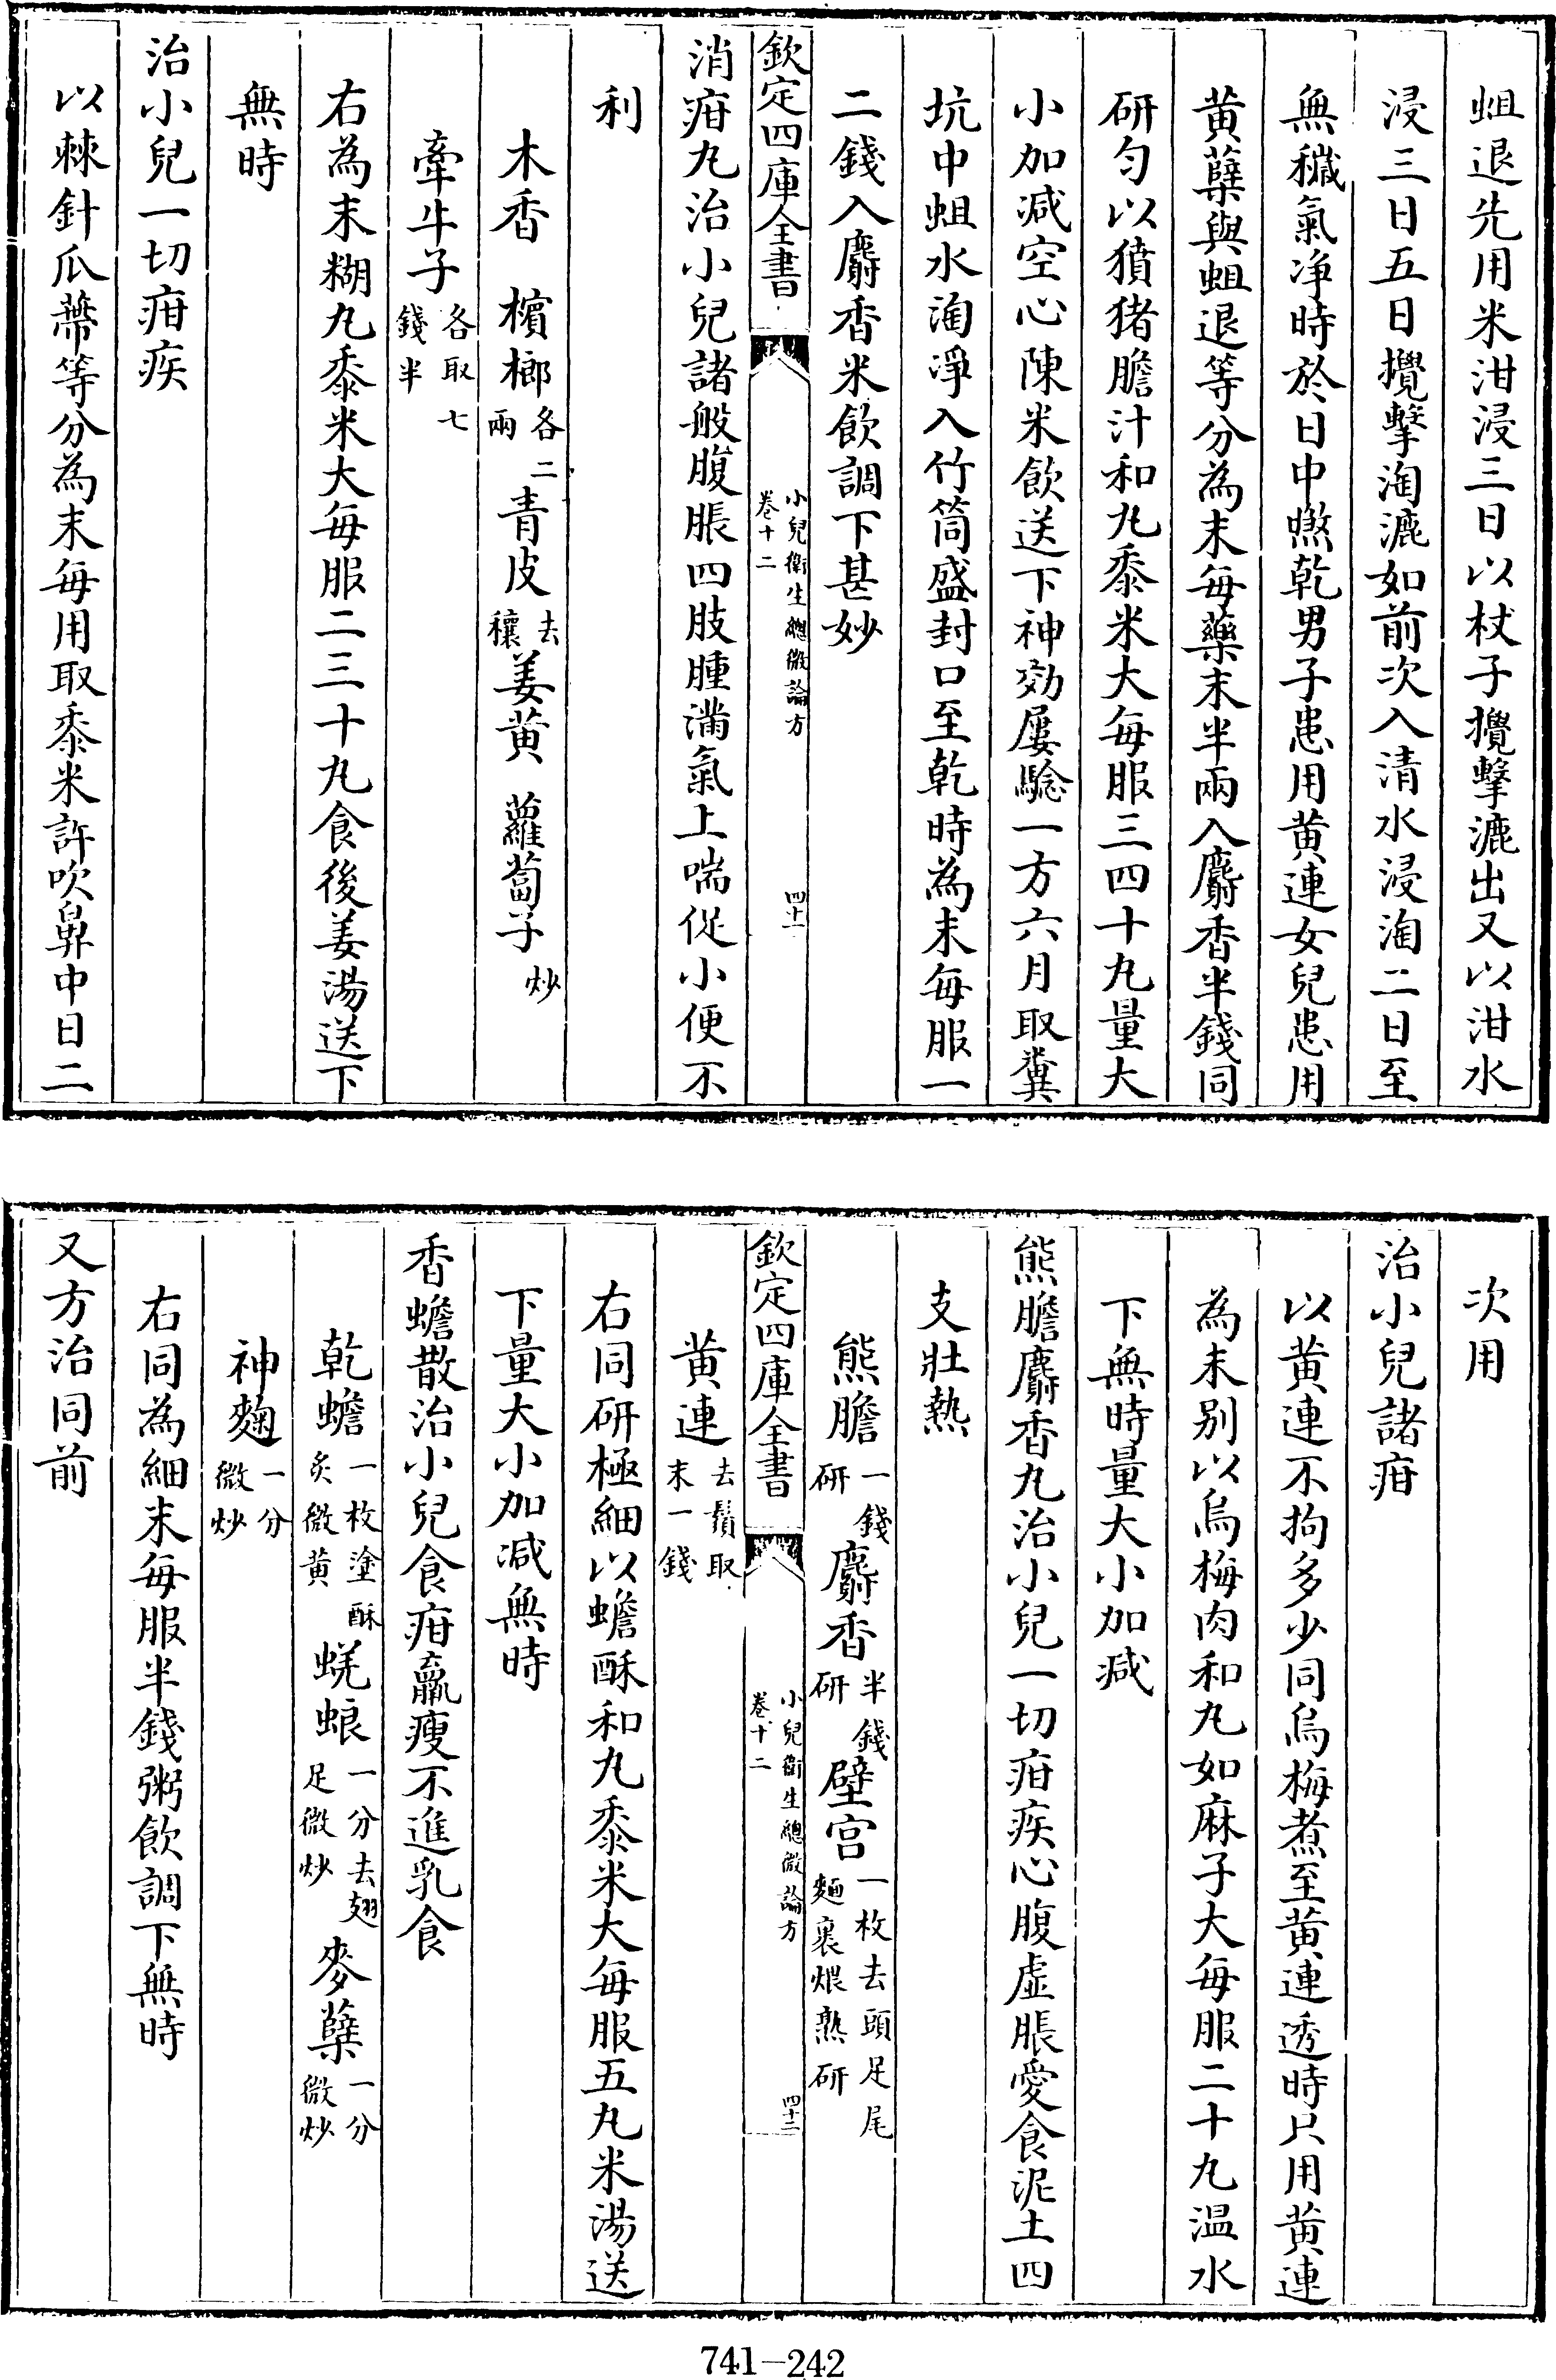 蛆退先用米泔浸三日以杖子攪擊漉出又以泔水
浸三日五日攪擊淘漉如前次入清水浸淘二日至
無穢氣净時於日中㬠乾男子患用黄連女兒患用
黄蘗與蛆退等分為末每藥末半兩入麝香半錢同
研匀以獖猪膽汁和丸黍米大每服三四十丸量大
小加减空心陳米飲送下神効屢騐一方六月取糞
坑中蛆水淘淨入竹筒盛封口至乾時為末每服一
二錢入麝香米飲調下甚妙
欽定四庫全書
小兒衛生總微論方
卷十二
四十一
消疳丸治小兒諸般腹脹四肢腫滿氣上喘促小便不
利
木香 檳榔各二兩 青皮去穰 姜黄 蘿蔔子炒
牽牛子各取七錢半
右為末糊丸黍米大每服二三十丸食後姜湯送下
無時
治小兒一切疳疾
以棘針瓜蔕等分為末每用取黍米許吹鼻中日二
次用
治小兒諸疳
以黄連不拘多少同烏梅煮至黄連透時只用黄連
為末别以烏梅肉和丸如麻子大每服二十丸温水
下無時量大小加减
熊膽麝香丸治小兒一切疳疾心腹虛脹愛食泥土四
支壯熱
熊膽一錢研 麝香半錢研 壁宫一枚去頭足尾麵裹煨熟研
欽定四庫全書
小兒衛生總微論方
卷十二
四十二
黄連去鬚取末一錢
右同研極細以蟾酥和丸黍米大每服五丸米湯送
下量大小加减無時
香蟾散治小兒食疳羸瘦不進乳食
乾蟾一枚塗酥炙微黄 蜣蜋一分去翅足微炒 麥蘗一分微炒
神麴一分微炒
右同為細末每服半錢粥飲調下無時
又方治同前
741—242